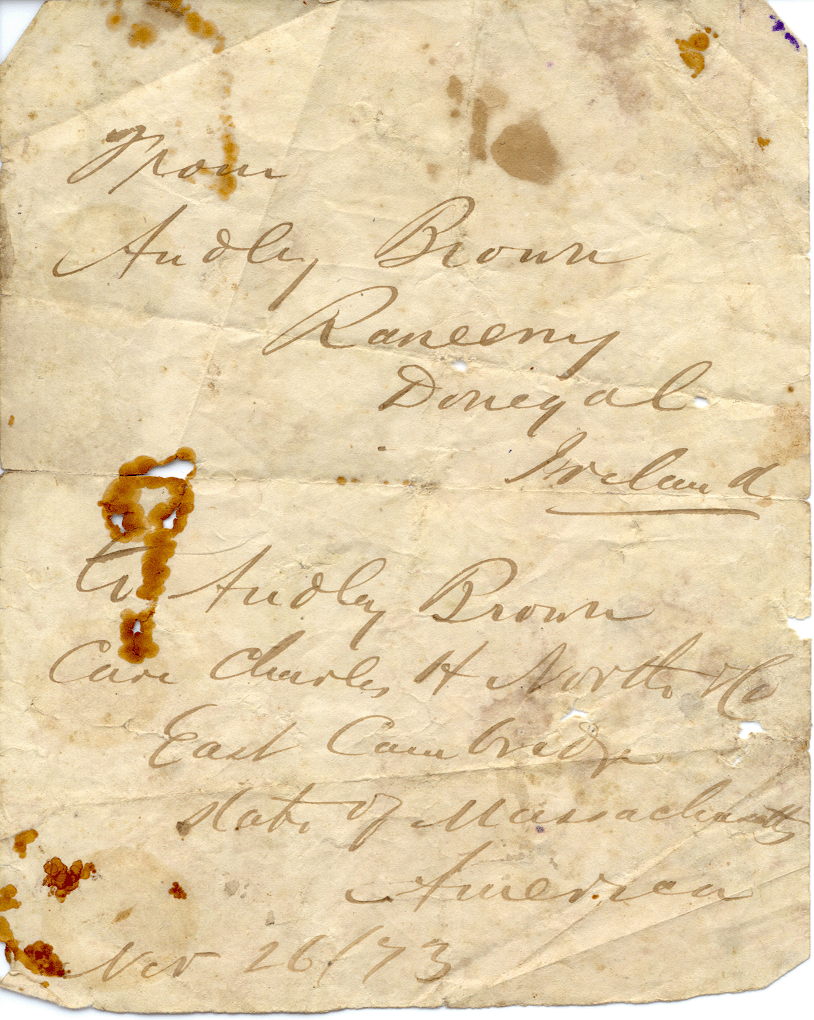 From
Audley Brown
Raneeny
Donegal
Ireland
to Audley Brown
Care Charles H North & Co
East Cambridge
State of Massachusetts
America
Nov 26/73